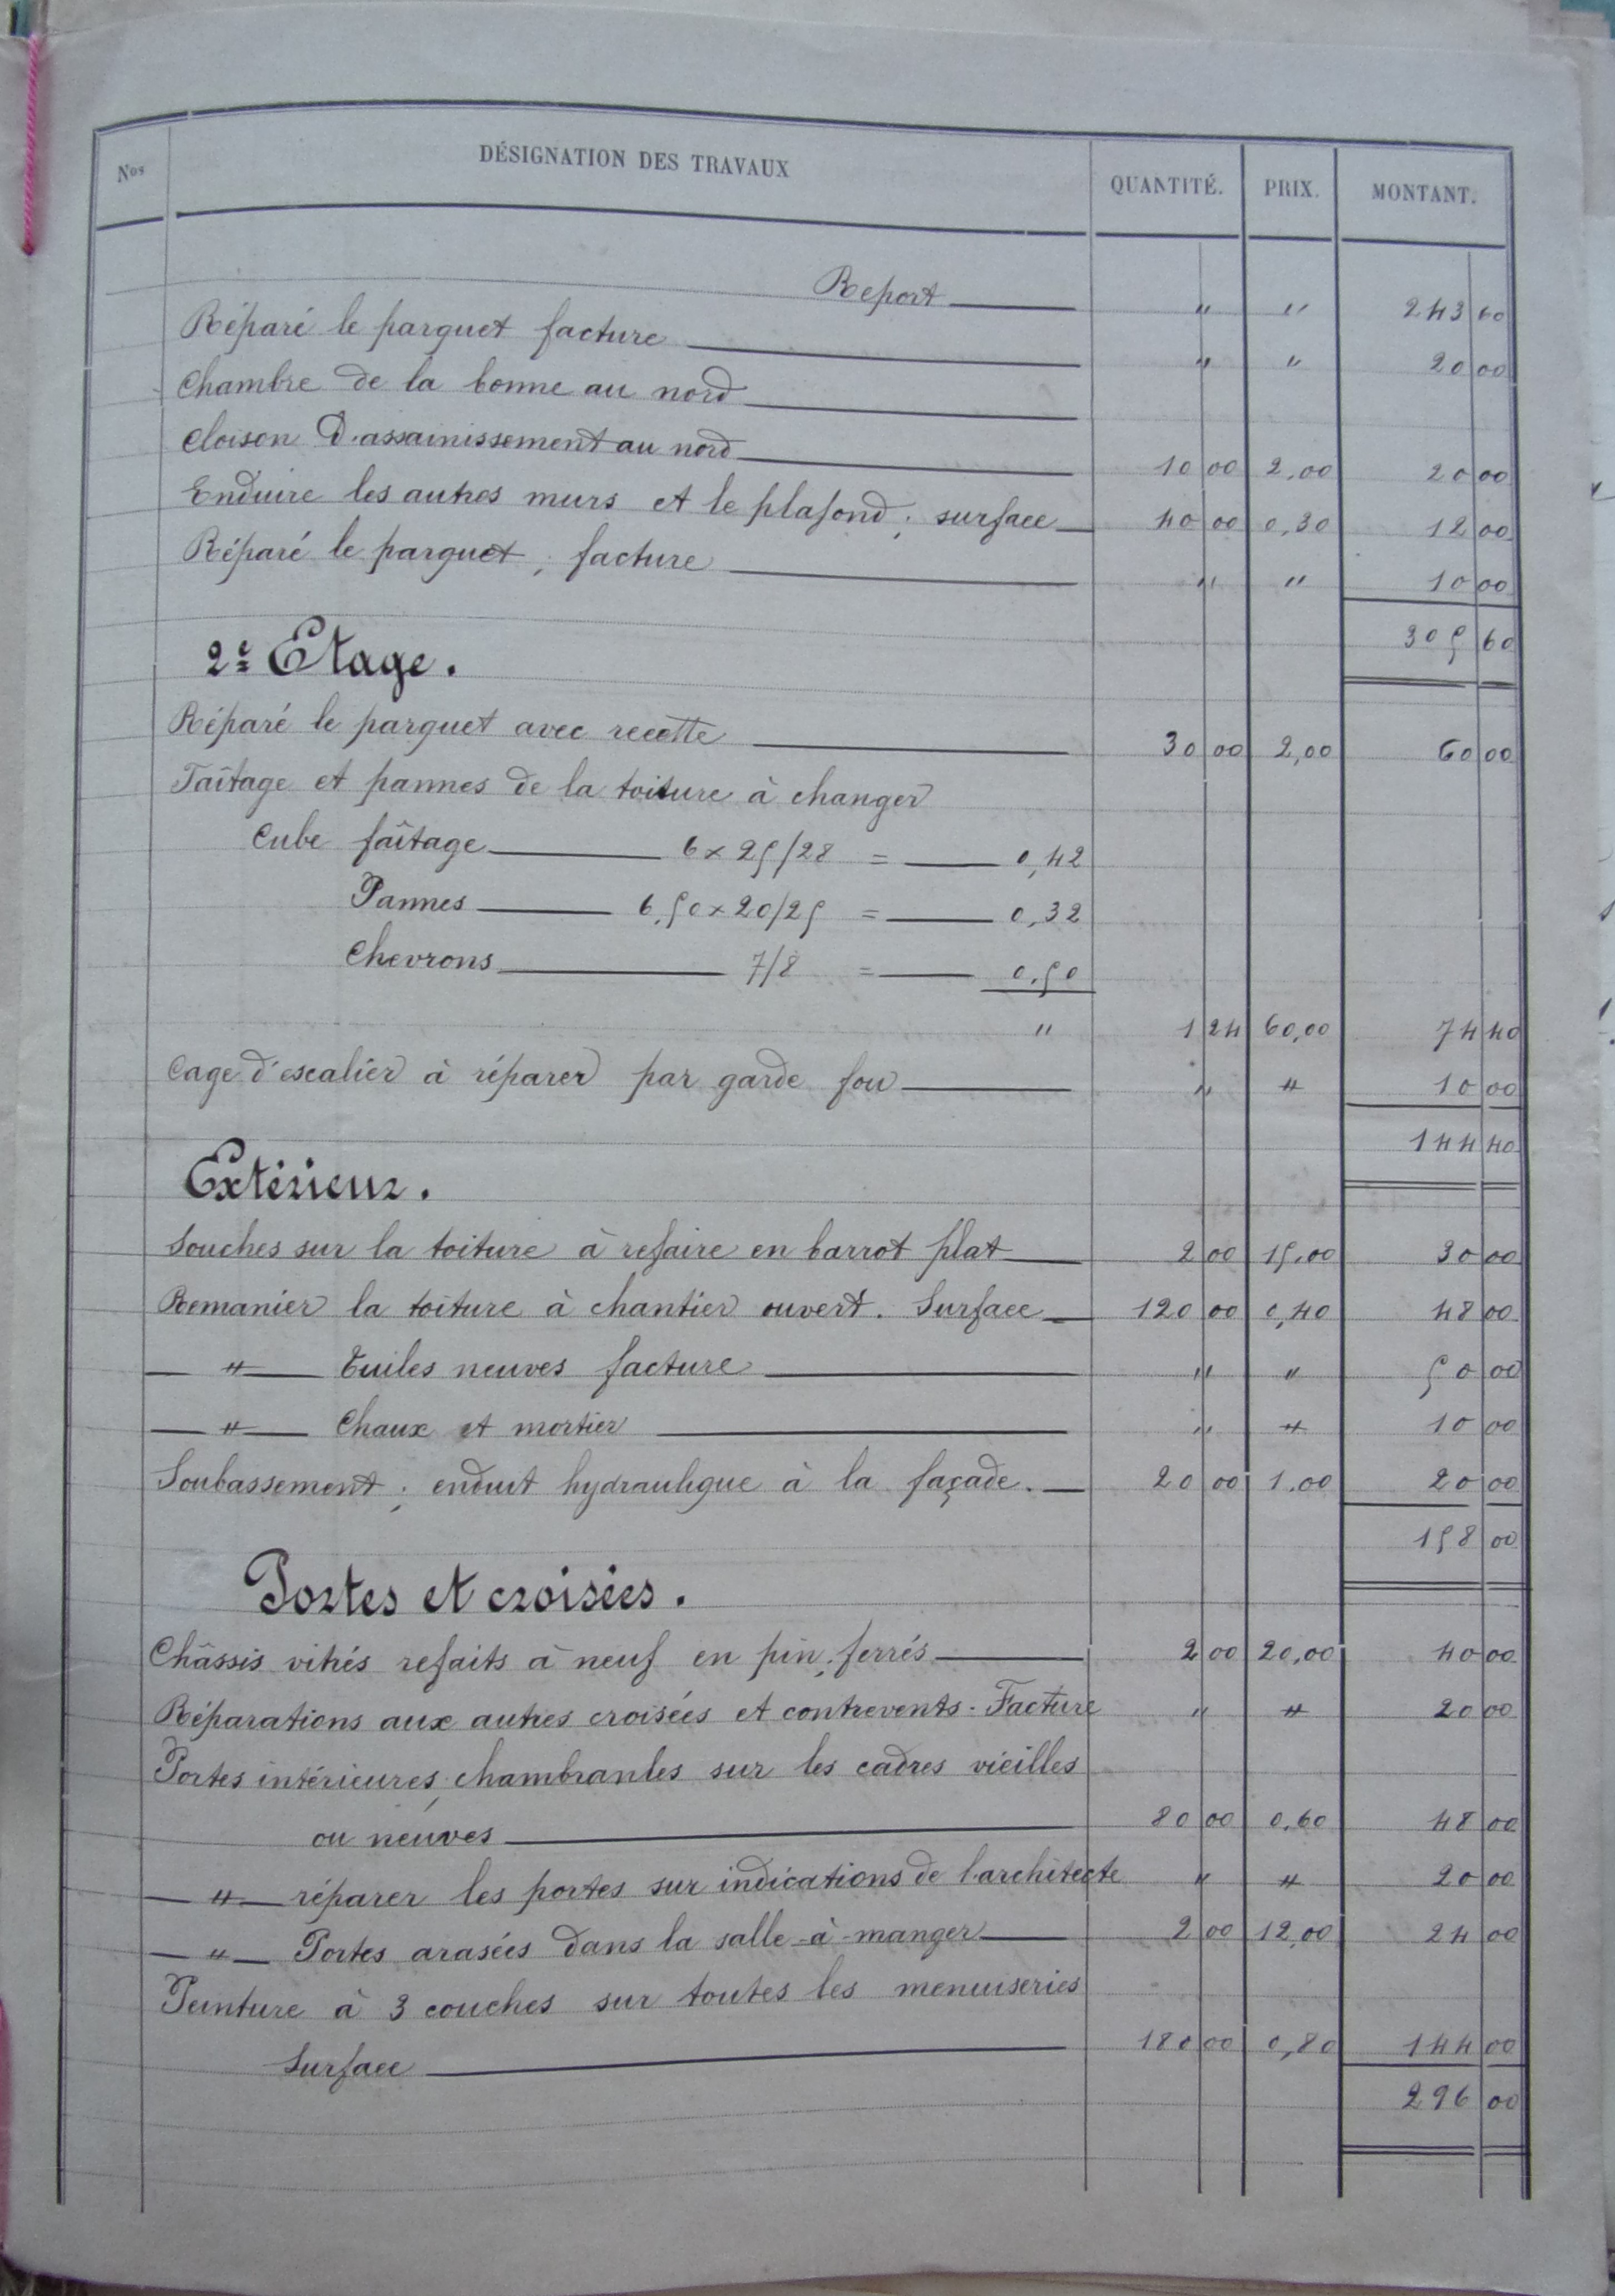 Nos DÉSIGNATION DES TRAVAUX QUANTITÉ. PRIX. MONTANT.
Report " " 243 60
Réparé le parquet facture " " 20 00
Chambre de la bonne au nord
Cloison d'assainissement au nord 10 00 2,00 20 00
Enduire les autres murs et le plafond; surface 40 00 0,30 12 00
Réparé le parquet; facture " " 10 00
305 60
2e Etage.
Réparé le parquet avec recette 30 00 2,00 60 00
Faîtage et pannes de la toiture à changer
Cube faîtage 6 x 25/28 = 0,42
Pannes 6,50 x 20/25 = 0,32
Chevrons 7/8 = 0,50
" 1 24 60,00 74 40
Cage d'escalier à réparer par garde fou " " 10 00
144 40
Extérieur.
Souches sur la toiture à refaire en barrot plat 2 00 15,00 30 00
Remanier la toiture à chantier ouvert. Surface 120 00 0,40 48 00
— " — Tuiles neuves facture " " 50 00
— " — Chaux et mortier " " 10 00
Soubassement; enduit hydraulique à la façade. 20 00 1,00 20 00
158 00
Portes et croisées.
Châssis vitrés refaits à neuf en pin; ferrés 2 00 20,00 40 00
Réparations aux autres croisées et contrevents. Facture " " 20 00
Portes intérieures, chambranles sur les cadres vieilles
ou neuves 80 00 0,60 48 00
— " — réparer les portes sur indications de l'architecte " " 20 00
— " — Portes arasées dans la salle-à-manger 2 00 12,00 24 00
Peinture à 3 couches sur toutes les menuiseries
Surface 180 00 0,80 144 00
296 00